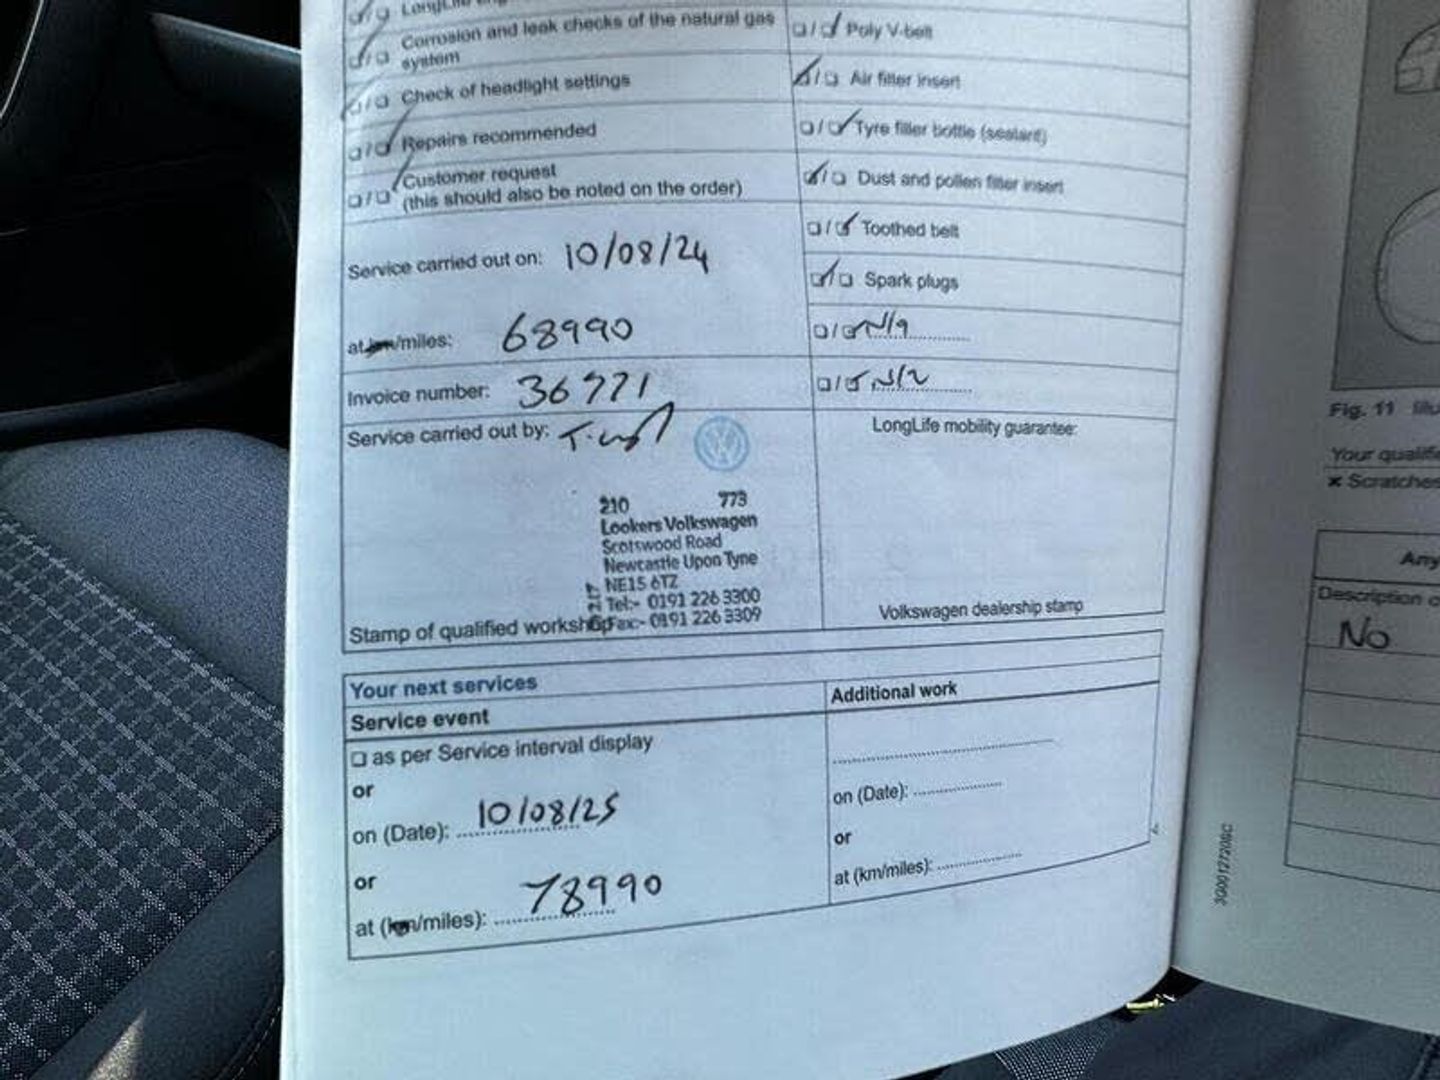 Corrosion and leak checks of the natural gas
system
Check of headlight settings
Repairs recommended
Customer request
(this should also be noted on the order)
Service carried out on: 10/08/24
at km/miles: 68990
Invoice number: 36771
Service carried out by:
210 773
Lookers Volkswagen
Scotswood Road
Newcastle Upon Tyne
NE15 6TZ
Tel:- 0191 226 3300
Fax:- 0191 226 3309
Stamp of qualified workshop
Poly V-belt
Air filter insert
Tyre filler bottle (sealant)
Dust and pollen filter insert
Toothed belt
Spark plugs
N/a
LongLife mobility guarantee:
Volkswagen dealership stamp
Your next services
Service event
as per Service interval display
or
on (Date): 10/08/25
or
at (km/miles): 78990
Additional work
on (Date):
or
at (km/miles):
Fig. 11
Your
Scratches
Any
Description
No